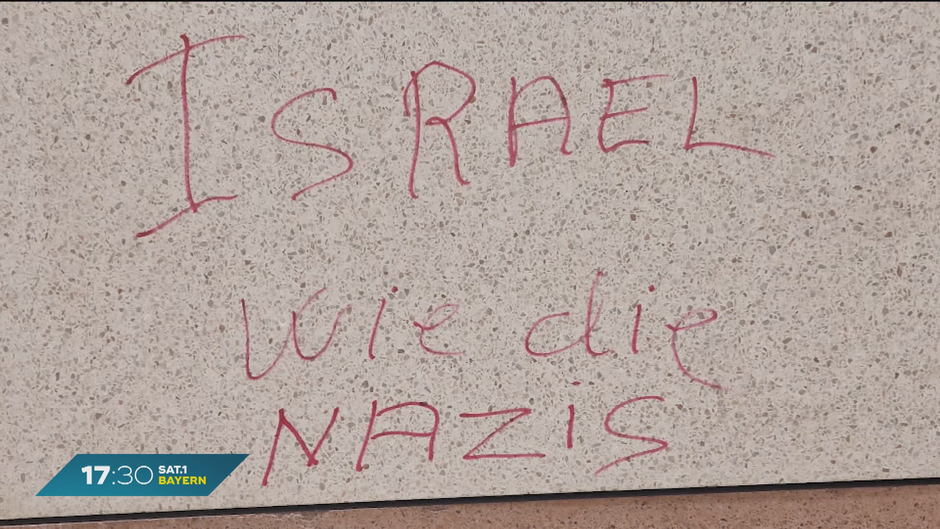 ISRAEL
wie die
NAZiS
17:30 SAT.1
BAYERN